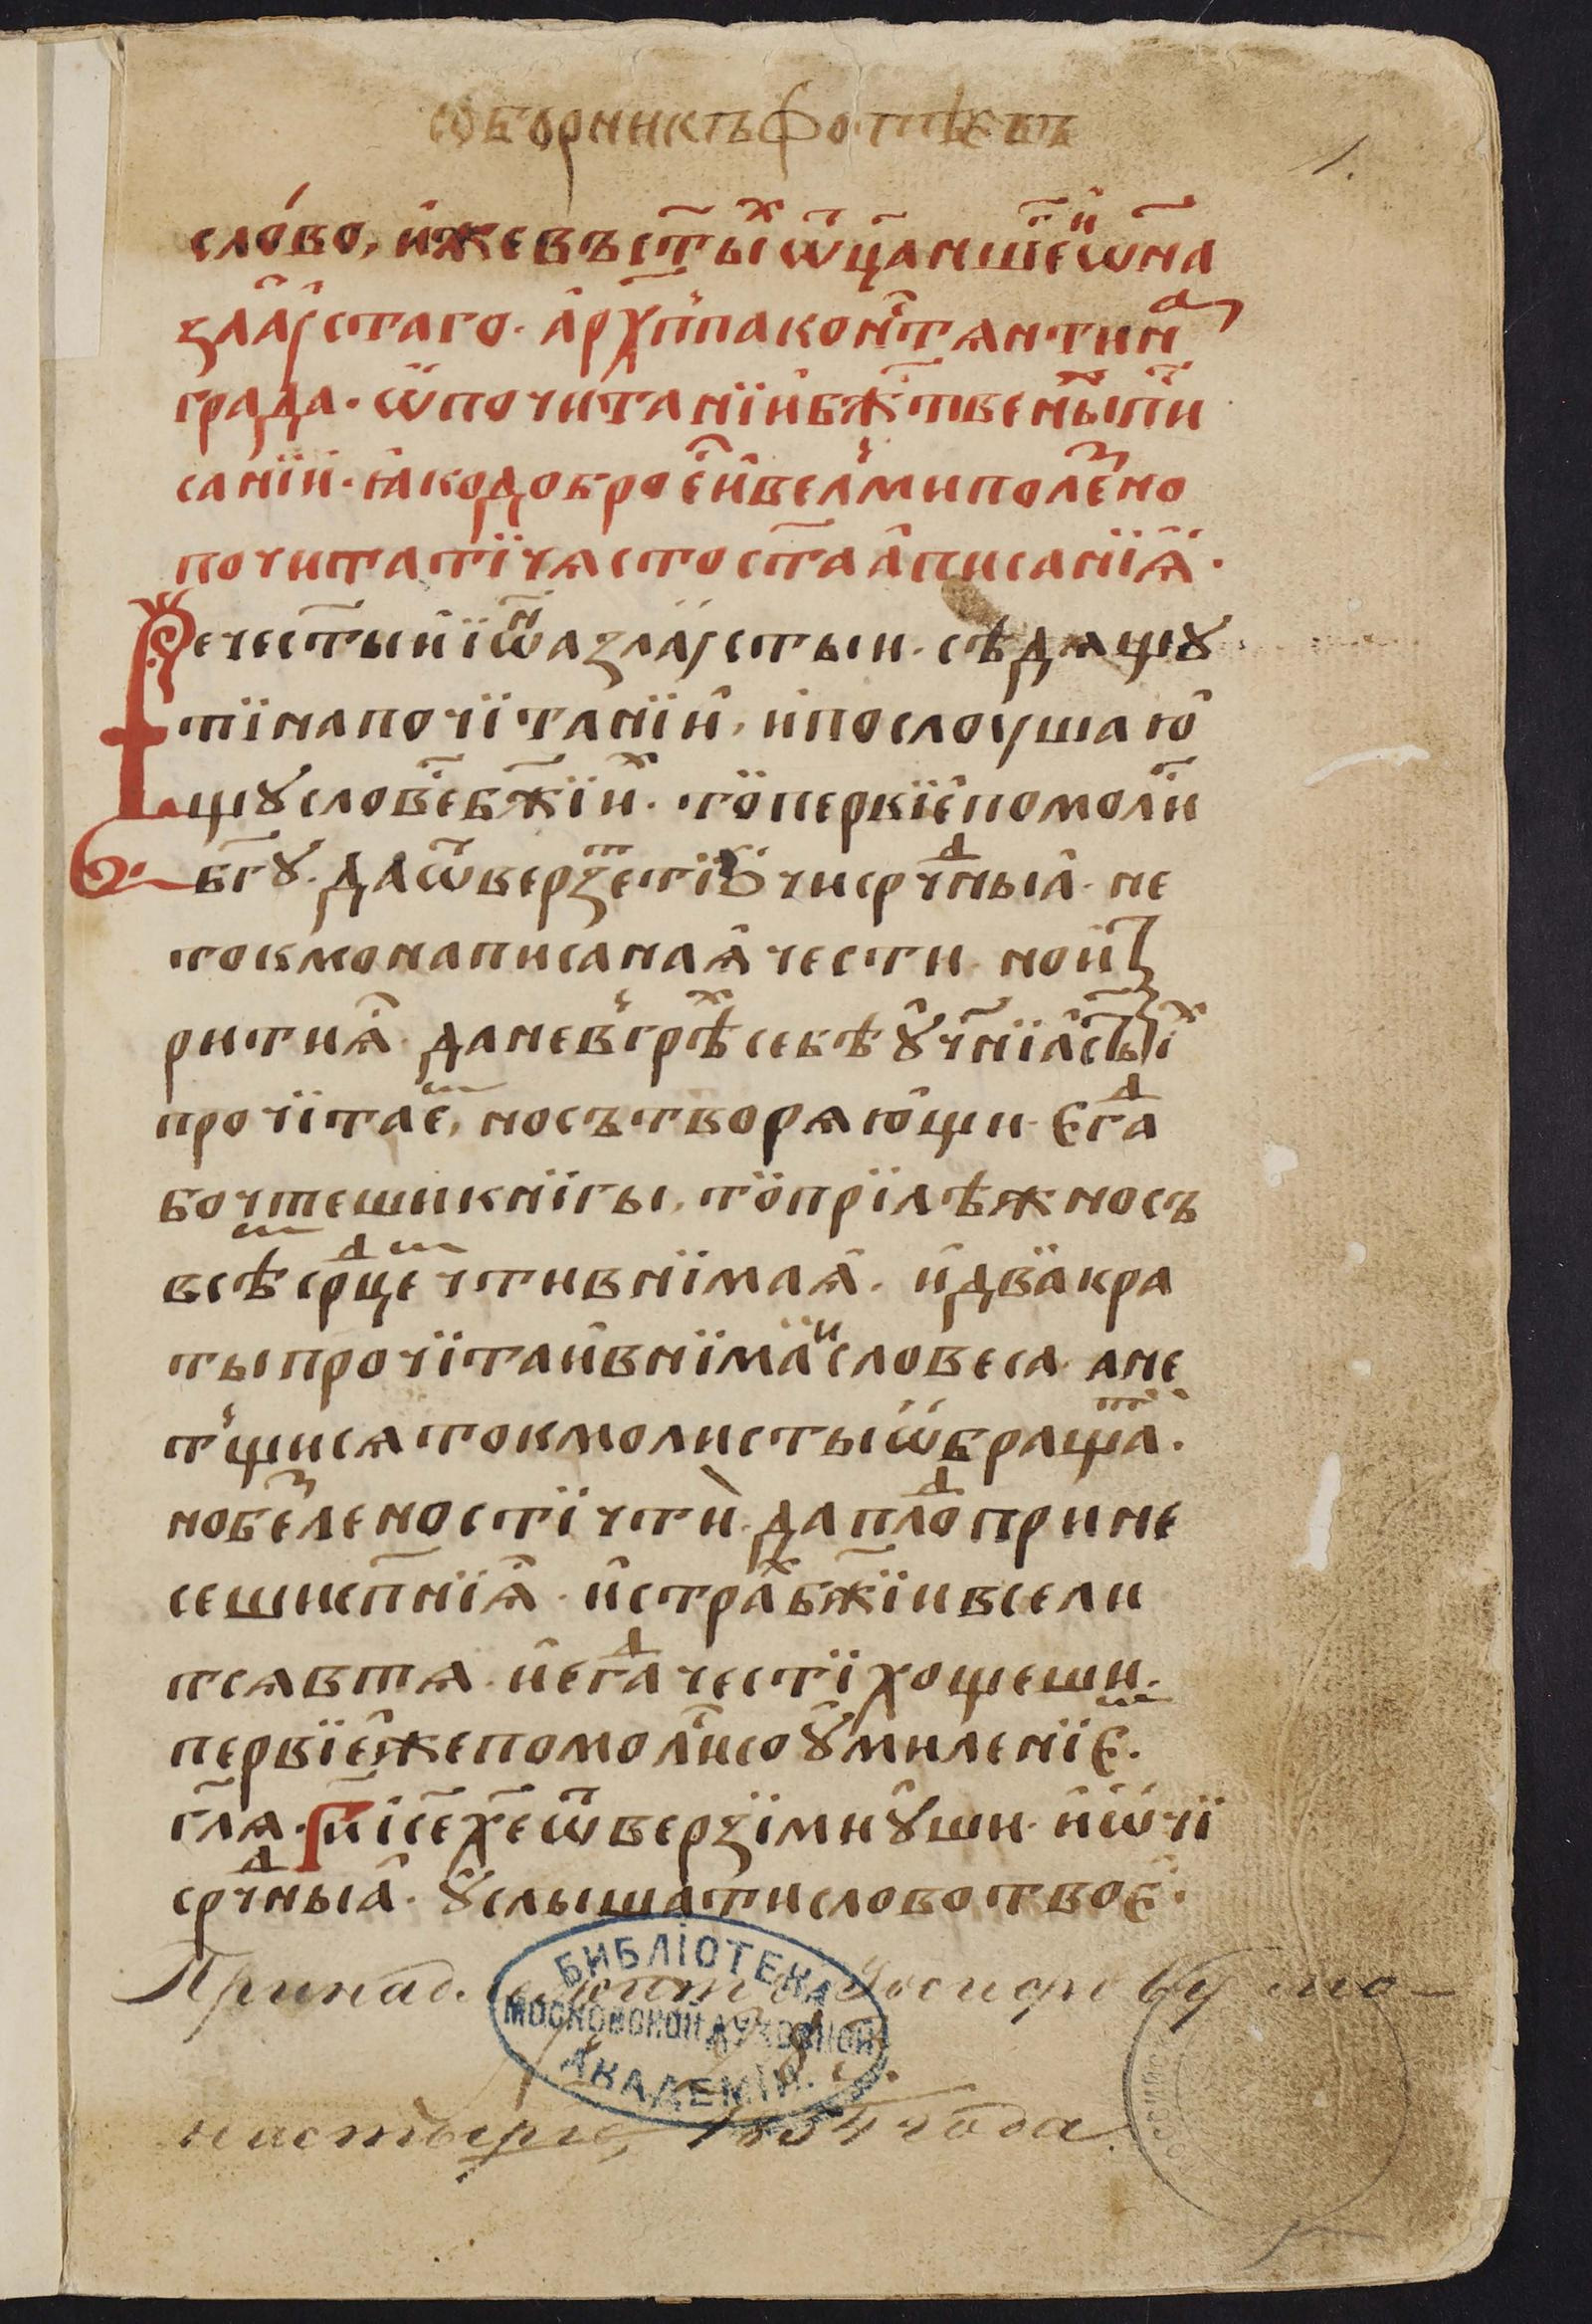 сѡборникъ фотѣевъ
1.
сло́во, и҆же въ ст҃ы́хъ ѿц҃а нше҃гѿ і҆ѡ҃на
злаꙋстаго. а҆рхїеп҃па констѧнтинѧ
града. ѿ почитанїи бж҃твены́ пи
санїи. ꙗ҆ко добро е҆ и҆ вел̾ми поле҆ꙁно
почитатї чѧсто ст҃аа҆ писанїѧ҆.
Рече ст҃ыи і҆ѡ҃а злаꙋстыи. сѣдѧщꙋ
ти на почїтанїи, и҆ послоушаю҆
щꙋ словесе бж҃їих. то̏ первїе҆ помоли
бг҃ꙋ. да ѿверзеть ти ꙍчи срⷣчныа҆. не
токмо написанаѧ҆ чести. но и҆ тво
рити ѧ҆. да не въ грѣх себѣ ꙋ҆ч҃нїа ст҃ых
прочїтаем, но сътворѧю҆щи. Єгⷣа
бо чтеши книгы, то̏ прїлѣжно съ
всѣм срⷣцем чти внїмаѧ҆. и҆ два̏кра
ты прочїтаи внїмаѧ҆ словеса. а не
т̾щисѧ токмо листы ѡ҆бращати.
но без лености чти. да плоⷣ прине
сеши сп҃нїѧ҆. и҆ страⷯ бж҃їи всели
тсѧ в тѧ. и҆ егⷣа чести хощеши.
первїе҆ же помолисѧ со ꙋ҆милениеⷨ.
гл҃ѧ. г҃и і҃се х҃е ѿверзи ми ꙋши. и҆ ѡ҆чї
срⷣчныа҆. ꙋ҆слышати слово твое҆.
Принадлежитъ Іосифову мо-
настырю, 1854 года.
БИБЛІОТЕКА
МОСКОВСКОЙ ДУХОВНОЙ
АКАДЕМІИ.